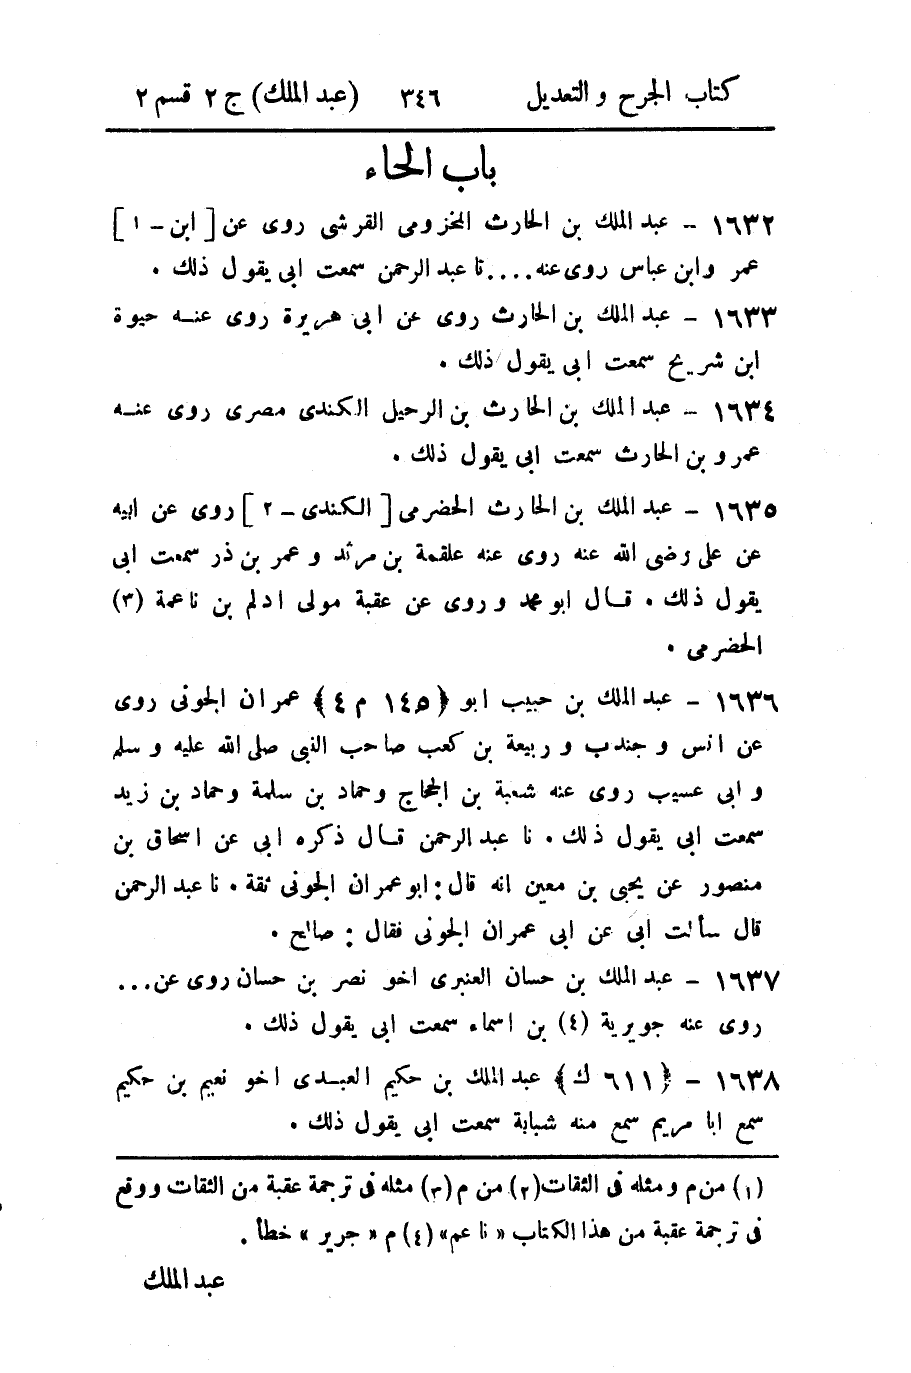 كتاب الجرح و التعديل ٣٤٦ (عبد الملك) ج ٢ قسم ٢
باب الحاء
١٦٣٢ - عبد الملك بن الحارث المخزومى القرشى روى عن [ ابن - ١ ]
عمر وابن عباس روى عنه .... نا عبد الرحمن سمعت ابى يقول ذلك .
١٦٣٣ - عبد الملك بن الحارث روى عن ابى هريرة روى عنه حيوة
ابن شريح سمعت ابى يقول ذلك .
١٦٣٤ - عبد الملك بن الحارث بن الرحيل الكندى مصرى روى عنه
عمرو بن الحارث سمعت ابى يقول ذلك .
١٦٣٥ - عبد الملك بن الحارث الحضرمى [ الكندى - ٢ ] روى عن ابيه
عن على رضى الله عنه روى عنه علقمة بن مرثد و عمر بن ذر سمعت ابى
يقول ذلك . قال ابو محمد و روى عن عقبة مولى ادلم بن ناعمة (٣)
الحضرمى .
١٦٣٦ - عبد الملك بن حبيب ابو ﴿ ١٤٥ م ٤ ﴾ عمران الجونى روى
عن انس و جندب و ربيعة بن كعب صاحب النبى صلى الله عليه و سلم
و ابى عسيب روى عنه شعبة بن الحجاج وحماد بن سلمة وحماد بن زيد
سمعت ابى يقول ذلك . نا عبد الرحمن قال ذكره ابى عن اسحاق بن
منصور عن يحيى بن معين انه قال : ابو عمران الجونى ثقة . نا عبد الرحمن
قال سألت ابى عن ابى عمران الجونى فقال : صالح .
١٦٣٧ - عبد الملك بن حسان العنبرى اخو نصر بن حسان روى عن ...
روى عنه جويرية (٤) بن اسماء سمعت ابى يقول ذلك .
١٦٣٨ - ﴿ ٦١١ ك ﴾ عبد الملك بن حكيم العبدى اخو نعيم بن حكيم
سمع ابا مريم سمع منه شبابة سمعت ابى يقول ذلك .
(١) من م و مثله فى الثقات (٢) من م (٣) مثله فى ترجمة عقبة من الثقات ووقع
فى ترجمة عقبة من هذا الكتاب « ناعم» (٤) م « جرير » خطأ .
عبد الملك